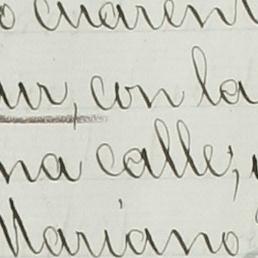 o cuarent
ur, con la
na calle,
Mariano